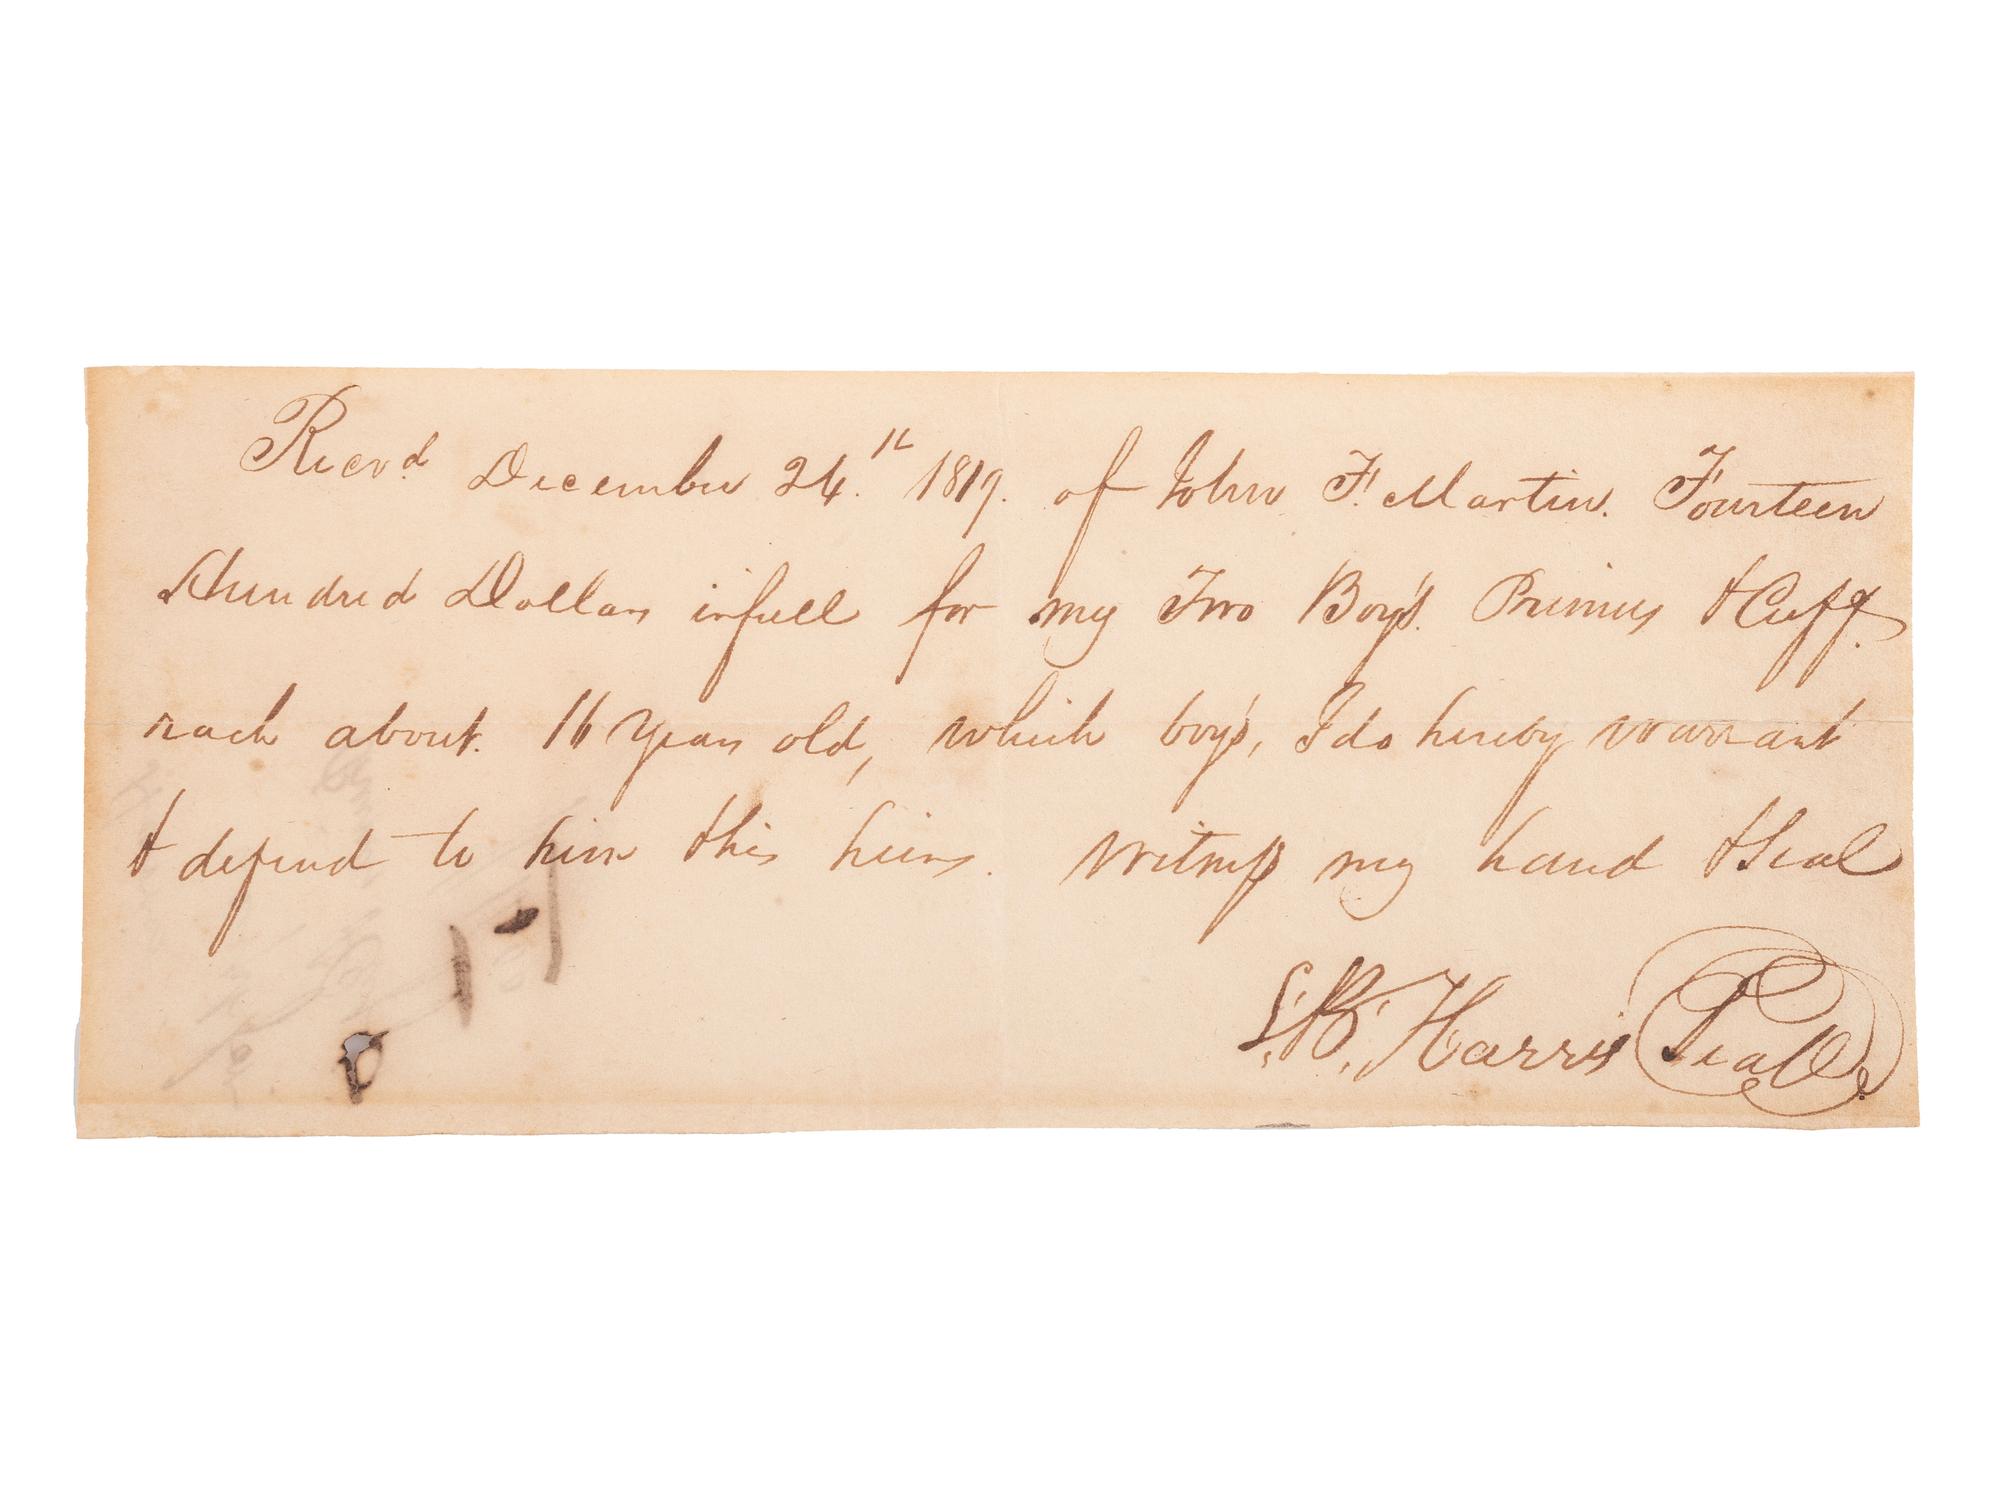 Recvd December 24th 1819. of John F. Martin. Fourteen
Hundred Dollars infull for my Two Boy's. Primus & Cuff.
each about. 16 Years old, which boy's, I do hereby warrant
& defend to him & his heirs. Witness my hand & Seal
L. B. Harris Seal